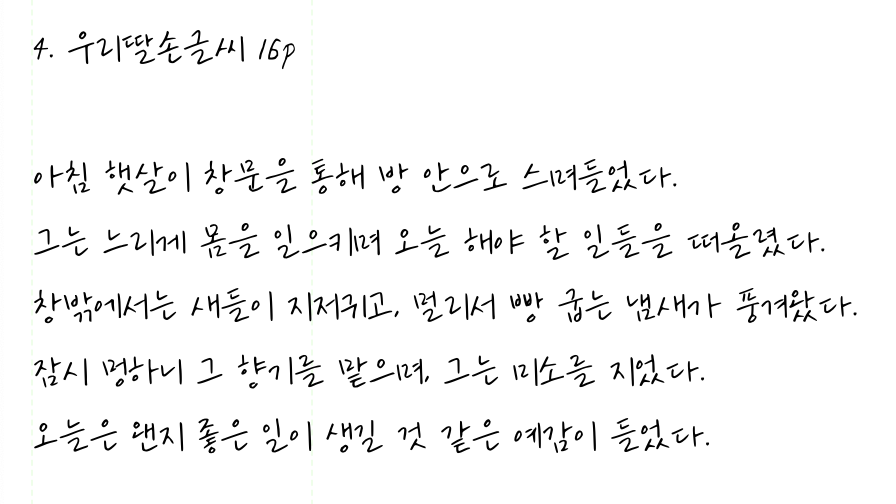 4. 우리딸손글씨 16p
아침 햇살이 창문을 통해 방 안으로 스며들었다.
그는 느리게 몸을 일으키며 오늘 해야 할 일들을 떠올렸다.
창밖에서는 새들이 지저귀고, 멀리서 빵 굽는 냄새가 풍겨왔다.
잠시 멍하니 그 향기를 맡으며, 그는 미소를 지었다.
오늘은 왠지 좋은 일이 생길 것 같은 예감이 들었다.